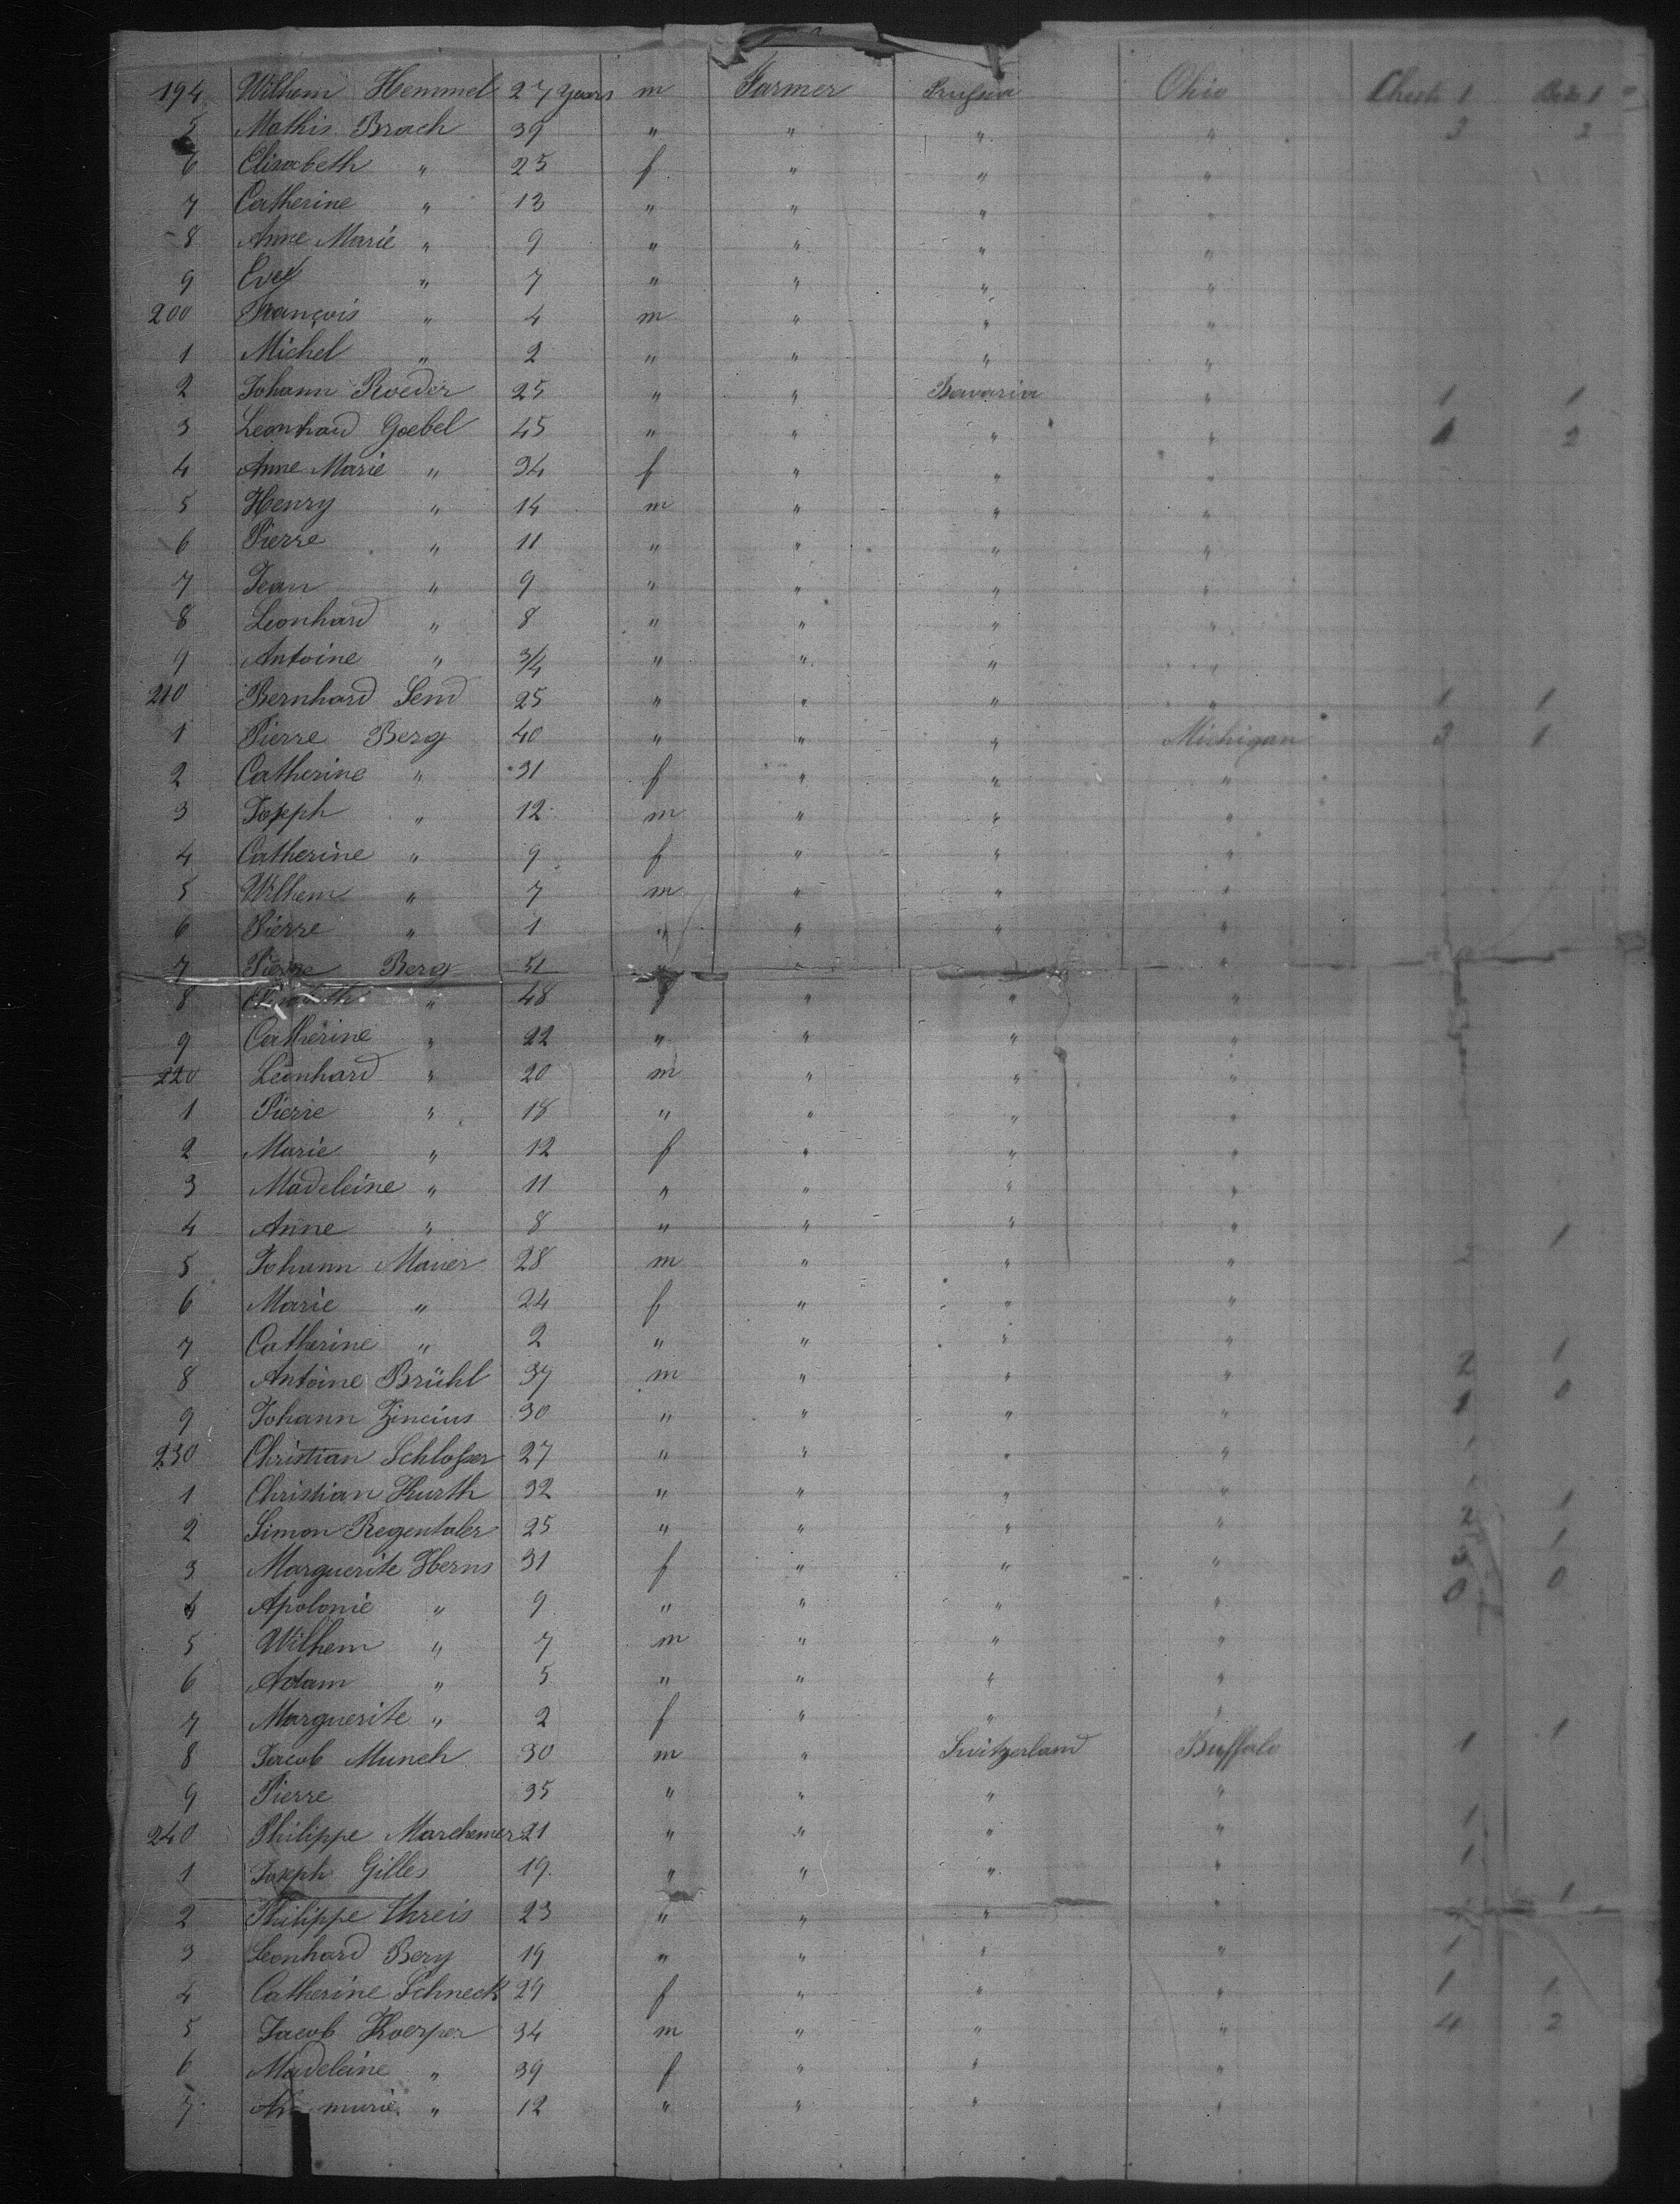 194 Wilhem Hemmel 27 years m Farmer Prussia Ohio Chests 1 Beds 1
5 Mathis Brach 39 " " " " 3 2
6 Elisabeth " 25 f " " "
7 Catherine " 13 " " " "
8 Anne Marie " 9 " " " "
9 Eve " 7 " " " "
200 François " 4 m " " "
1 Michel " 2 " " " "
2 Johann Roeder 25 " " Bavaria " 1 1
3 Leonhard Goebel 45 " " " " 2
4 Anne Marie " 34 f " " "
5 Henry " 14 m " " "
6 Pierre " 11 " " " "
7 Jean " 9 " " " "
8 Leonhard " 8 " " " "
9 Antoine " 3/4 " " " "
210 Bernhard Send 25 " " " " 1 1
1 Pierre Berg 40 " " " Michigan 3 1
2 Catherine " 31 f " " "
3 Joseph " 12 m " " "
4 Catherine " 9 f " " "
5 Wilhem " 7 m " " "
6 Pierre " 1 " " " "
7 Pierre Berg 51 " " "
8 Elisabeth " 48 f " " "
9 Catherine " 22 " " " "
220 Leonhard " 20 m " " "
1 Pierre " 18 " " " "
2 Marie " 12 f " " "
3 Madeleine " 11 " " " "
4 Anne " 8 " " " "
5 Johann Mauer 28 m " " " 2 1
6 Marie " 24 f " " "
7 Catherine " 2 " " " "
8 Antoine Brühl 37 m " " " 2 1
9 Johann Zincius 30 " " " " 1 0
230 Christian Schlosser 27 " " " "
1 Christian Kurth 32 " " " "
2 Simon Regentaler 25 " " " " 2 1
3 Marguerite Herns 31 f " " " 3 1
4 Apolonie " 9 " " " " 0 0
5 Wilhem " 7 m " " "
6 Adam " 5 " " " "
7 Marguerite " 2 f " " "
8 Jacob Munch 30 m " Switzerland Buffalo 1 1
9 Pierre 35 " " " "
240 Philippe Marchemer 21 " " " " 1
1 Joseph Gilles 19 " " " " 1
2 Philippe Threis 23 " " " " 1
3 Leonhard Berg 19 " " " " 1
4 Catherine Schneck 29 f " " " 1 1
5 Jacob Koerper 34 m " " " 4 2
6 Madeleine " 39 f " " "
7 marie " 12 " " " "